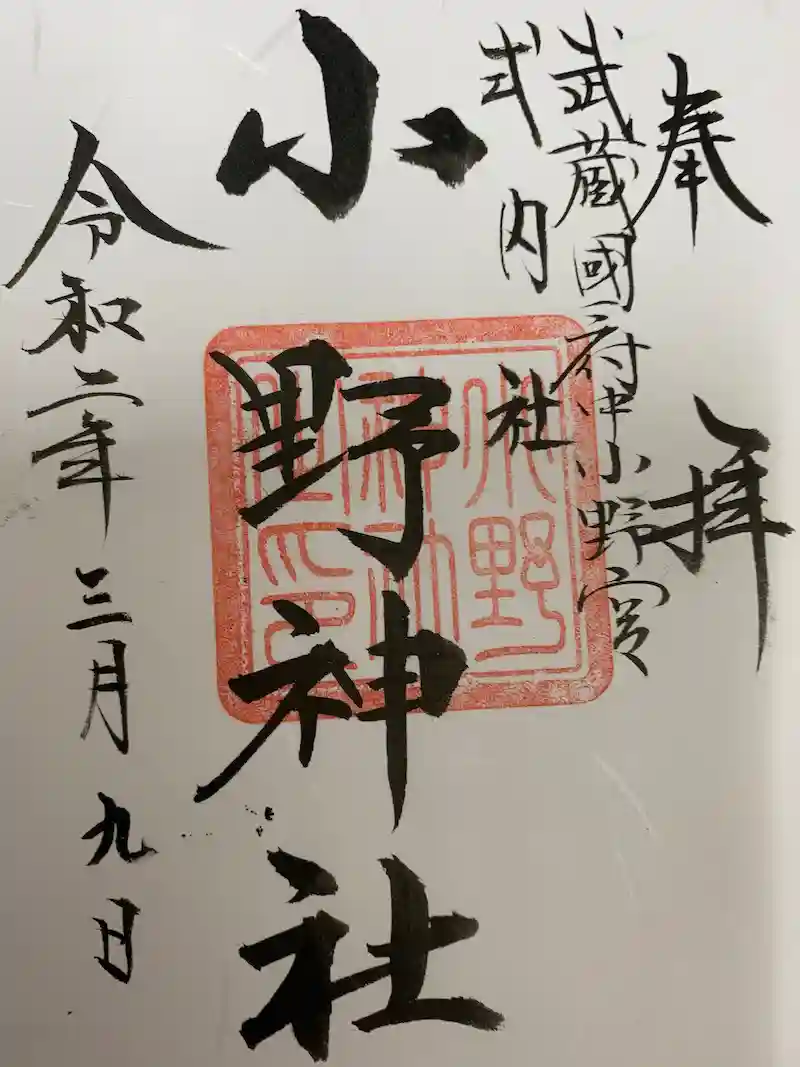 奉拝
武蔵國府中小野宮
式内社
小野神社
令和二年三月九日